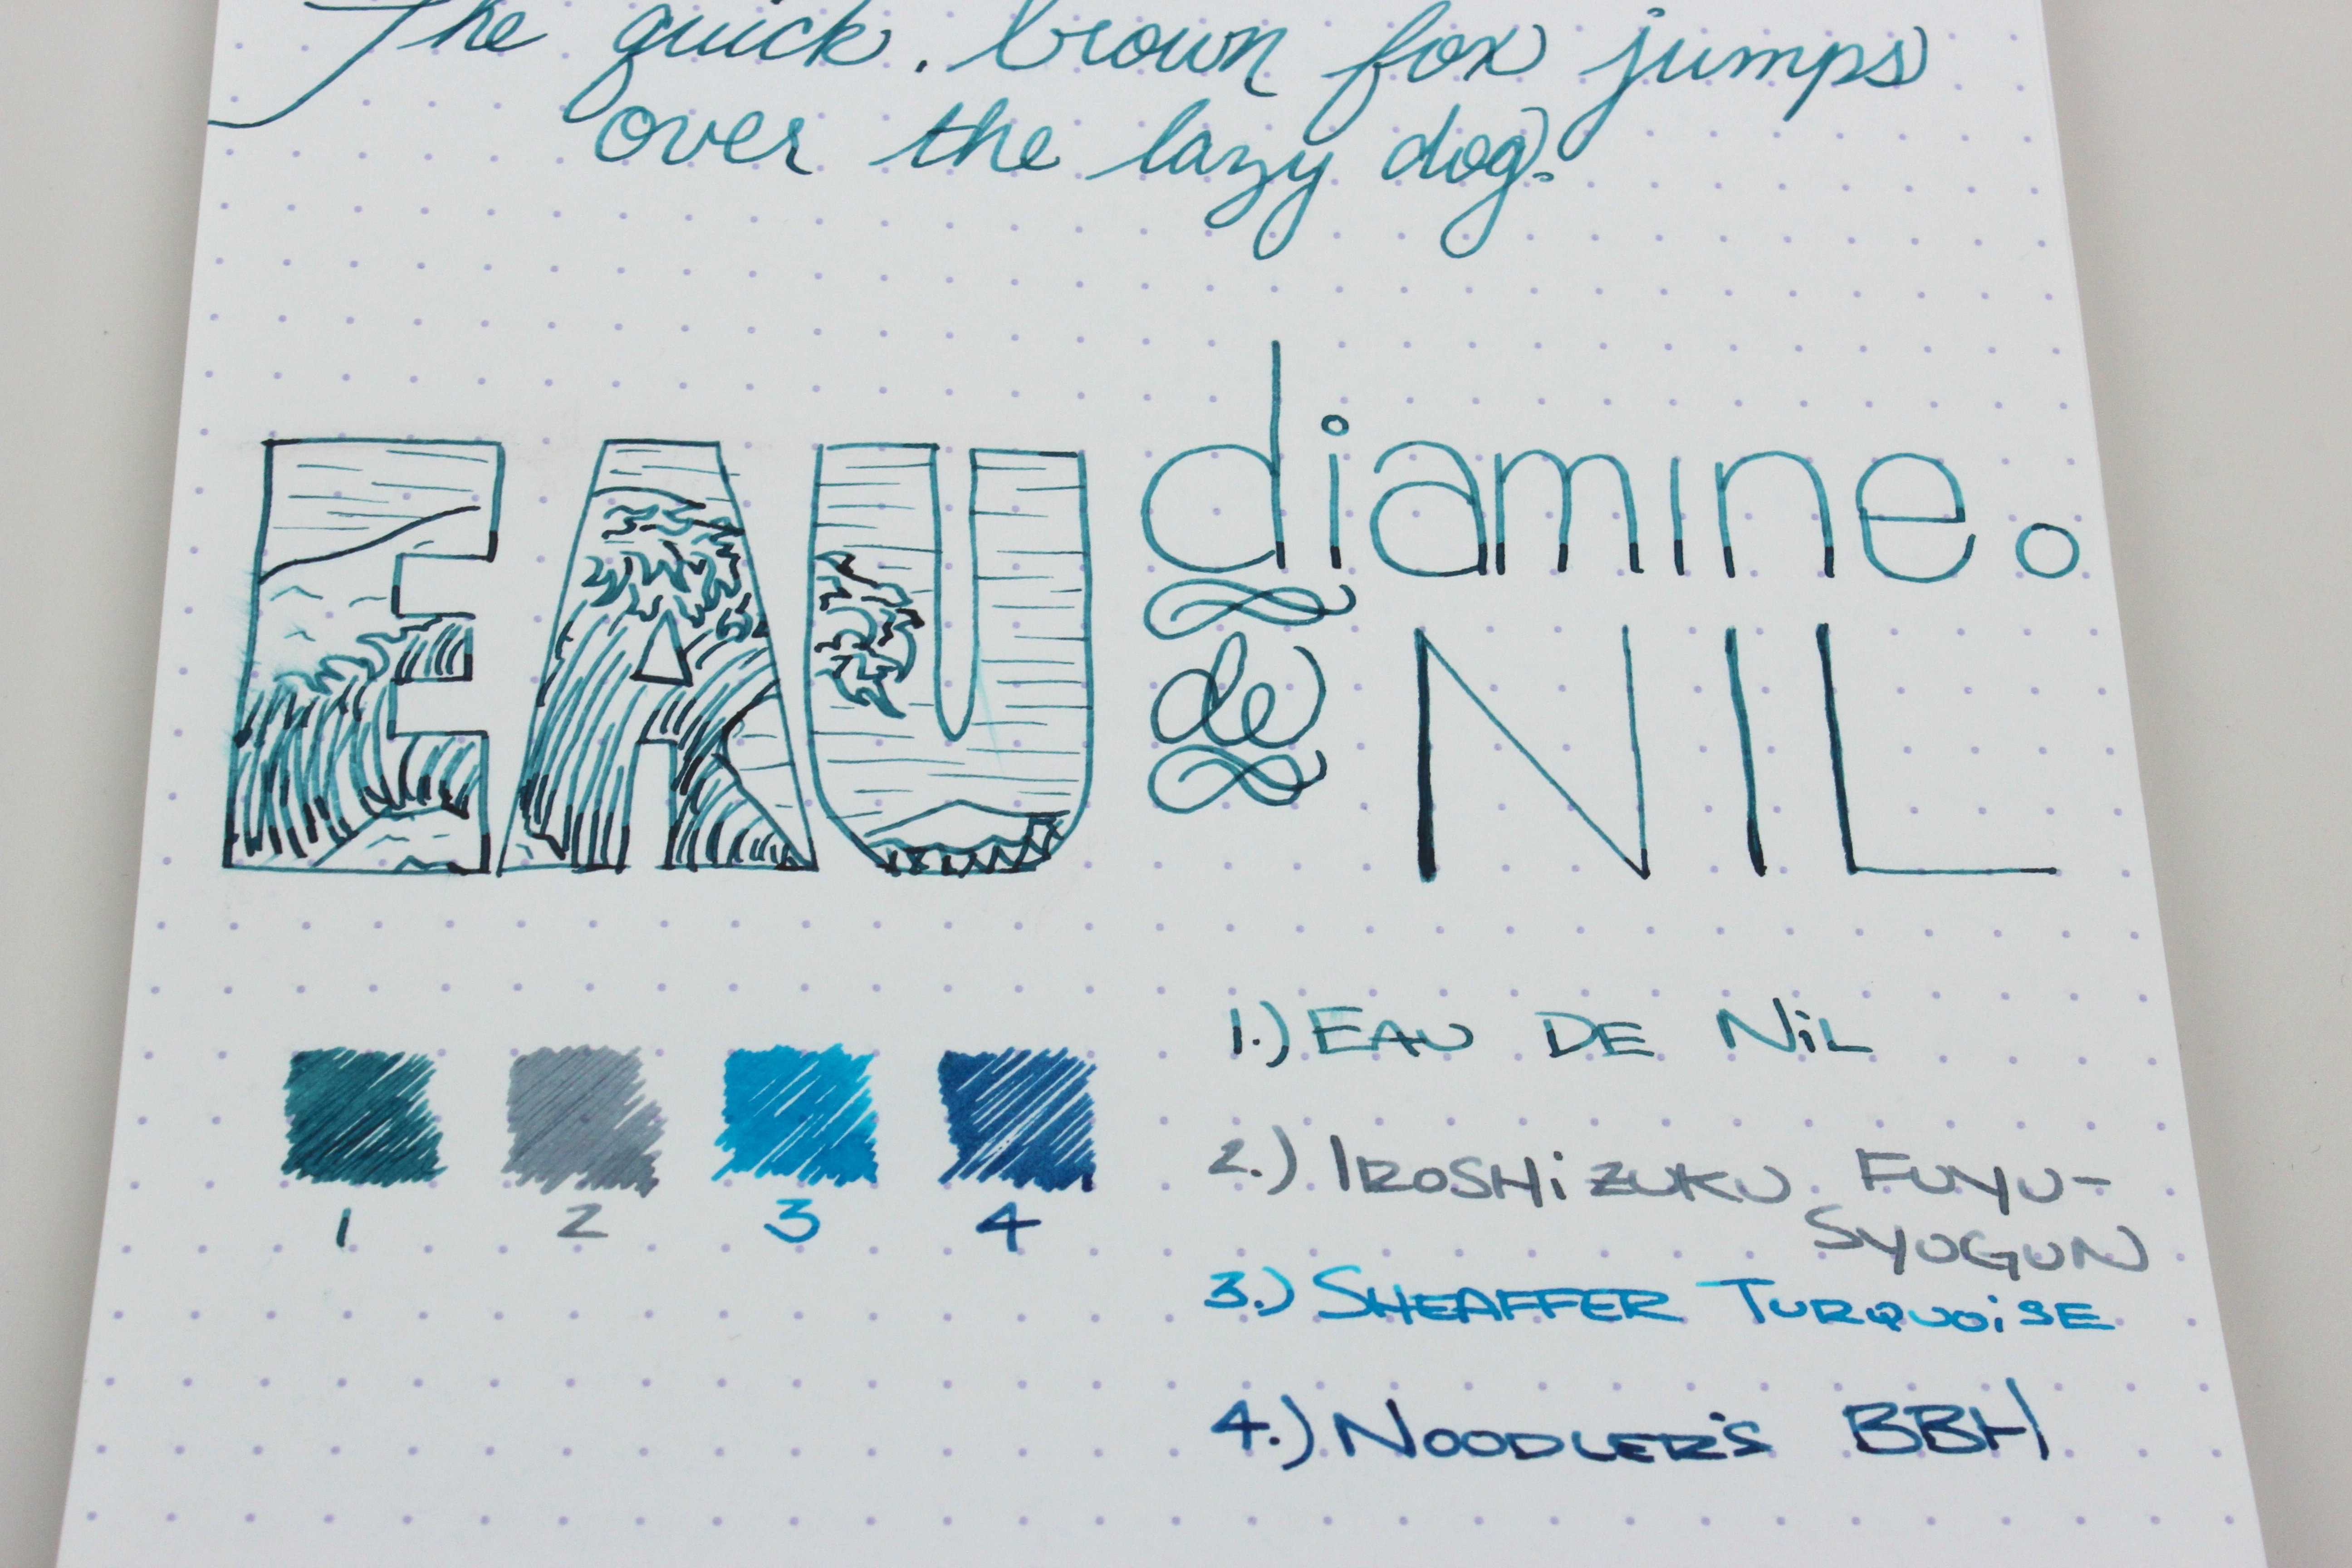 The quick, brown fox jumps
over the lazy dog.
diamine.
EAU de NIL
1 2 3 4
1.) EAU DE NiL
2.) IROSHiZUKU FUYU-
SYOGUN
3.) SHEAFFER TURQUOiSE
4.) NOODLER'S BBH